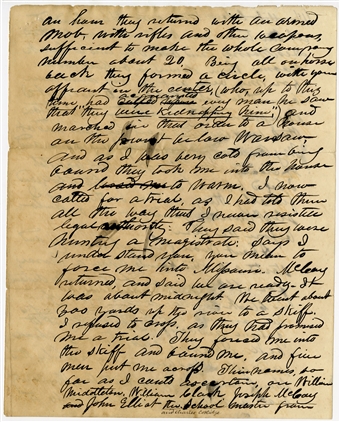 an hour they returned with an armed
mob, with rifles and other weapons,
sufficient to make the whole company
number about 20. Being all on horse
back they formed a circle, with your
affiant in the center, (who, up to this
time, had every man he saw
that they were kidnapping him,) and
marched in that order to a house
on the point below Warsaw,
and as I was very cold from being
bound they took me into the house
and to warm. I now
called for a trial, as I had told them
all the way thus I never resisted
legal authority. They said they were
hunting a magistrate. Says I
understand you, you mean to
force me into Missouri. McCoy
returned, and said we are ready. It
was about midnight. We went about
200 yards up the river to a skiff.
I refused to cross, as they had promised
me a trial. They forced me into
the skiff and bound me, and five
men put me across. Their names, so
far as I could ascertain, are William
Middleton, William Clark, Joseph McCoy
and John Elliot school master from